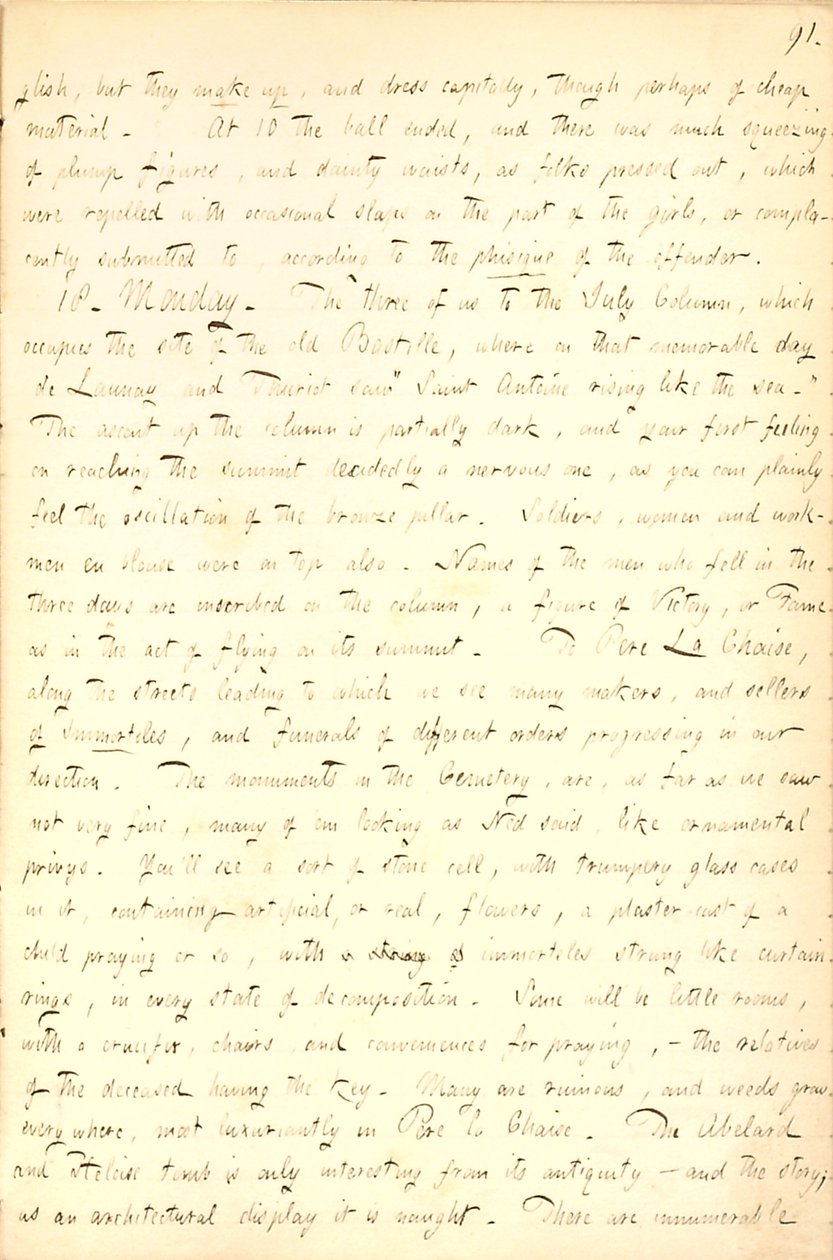 91.
glish, but they make up, and dress capitally, though perhaps of cheap
material. At 10 the ball ended, and there was much squeezing
of plump figures, and dainty waists, as folks pressed out, which
were repelled with occasional slaps on the part of the girls, or compla-
cently submitted to, according to the phisique of the offender.
18. Monday. The three of us to the July Column, which
occupies the site of the old Bastille, where on that memorable day
de Launay and Thuriot saw "Saint Antoine rising like the sea."
The ascent up the column is partially dark, and your first feeling
on reaching the summit decidedly a nervous one, as you can plainly
feel the oscillation of the bronze pillar. Soldiers, women and work-
men en blouse were on top also. Names of the men who fell in the
three days are inscribed on the column, a figure of Victory, or Fame
as in the act of flying on its summit. To Pere La Chaise,
along the streets leading to which we see many makers, and sellers
of Immortles, and funerals of different orders progressing in our
direction. The monuments in the Cemetery, are, as far as we saw
not very fine, many of 'em looking as Ned said, like ornamental
privys. You'll see a sort of stone cell, with trumpery glass cases
in it, containing artificial, or real, flowers, a plaster cast of a
child praying or so, with a string of immortles strung like curtain
rings, in every state of decomposition. Some will be little rooms,
with a crucifix, chairs, and conveniences for praying, - the relatives
of the deceased having the key. Many are ruinous, and weeds grow
everywhere, most luxuriantly in Pere la Chaise. The Abelard
and Heloise tomb is only interesting from its antiquity - and the story;
as an architectural display it is naught. There are innumerable